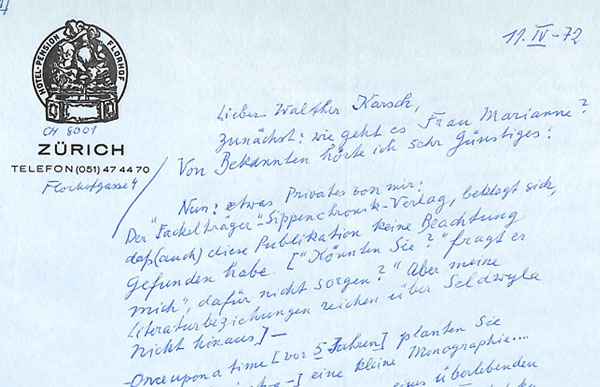 11. IV – 72
HOTEL-PENSION FLORHOF
CH 8001
ZÜRICH
TELEFON (051) 47 44 70
Florhofgasse 4
Lieber Walther Karsch,
zunächst: wie geht es Frau Marianne?
Von Bekannten hörte ich sehr Günstiges!
Nun: etwas Privates von mir:
Der "Fackelträger"-Sippenchronik-Verlag, beklagt sich,
daß (auch) diese Publikation keine Beachtung
gefunden habe. ["Könnten Sie?" fragt er
mich, "dafür nicht sorgen?" Aber meine
Literaturbeziehungen reichen über Seldwyla
nicht hinaus] –
Once upon a time [vor 5 Jahren] planten Sie
–] eine kleine Monographie...
überlebenden